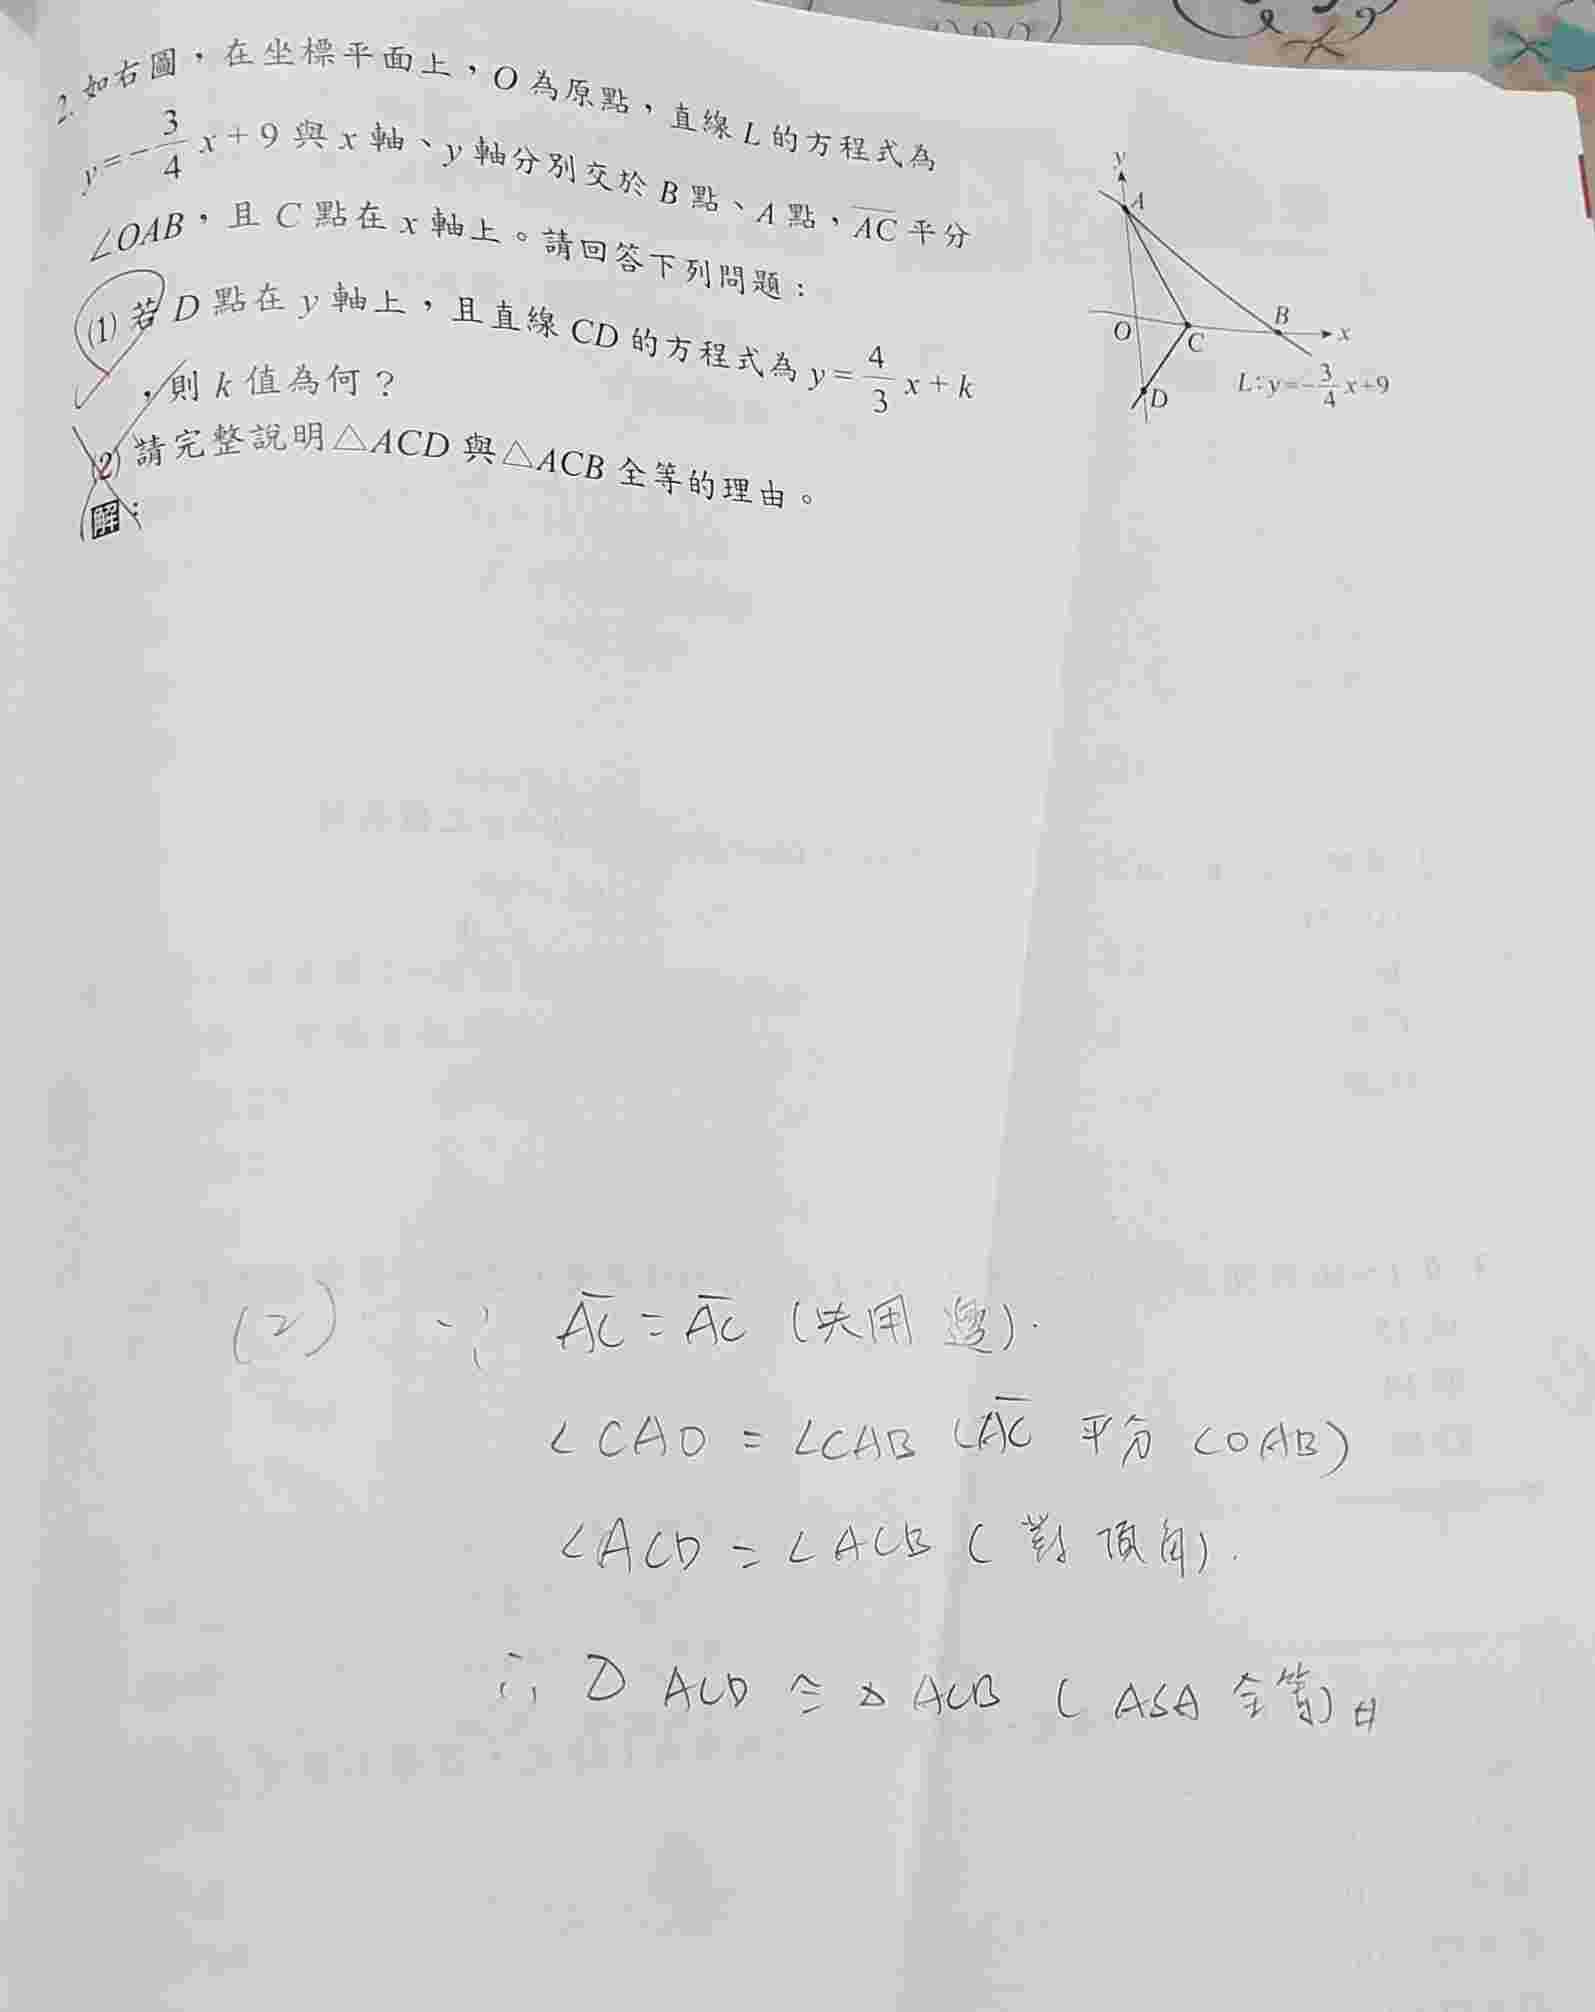 2. 如右圖，在坐標平面上，O 為原點，直線 L 的方程式為
y=-\frac{3}{4}x+9 與 x 軸、y 軸分別交於 B 點、A 點，\overline{AC} 平分
∠OAB，且 C 點在 x 軸上。請回答下列問題：
(1) 若 D 點在 y 軸上，且直線 CD 的方程式為 y=\frac{4}{3}x+k
，則 k 值為何？
(2) 請完整說明△ACD 與△ACB 全等的理由。
解：
y
A
B
O
C
x
D
L：y=-\frac{3}{4}x+9
(2) ∵ \overline{AC} = \overline{AC} (共用邊).
∠CAD = ∠CAB (\overline{AC} 平分 ∠OAB)
∠ACD = ∠ACB (對頂角).
∴ △ACD ≅ △ACB (ASA 全等)